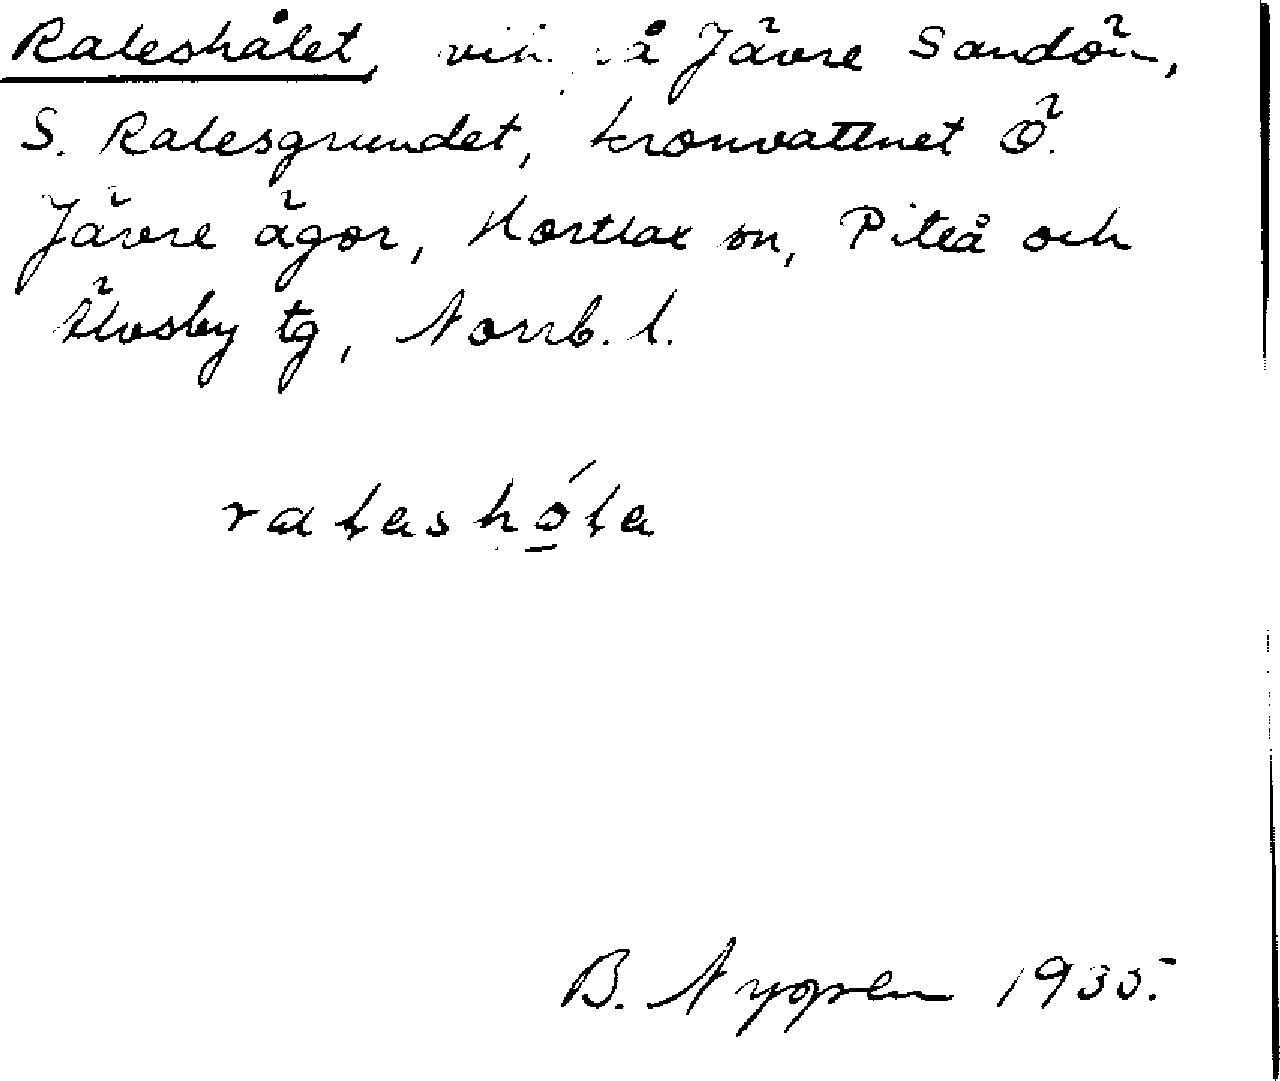 Raleshålet, vik på Jävre Sandön,
S. Ralesgrundet, kronvattnet Ö.
Jävre ägor, Hortlax sn, Piteå och
Älvsby tg, Norrb. l.
B. Nygren 1935.